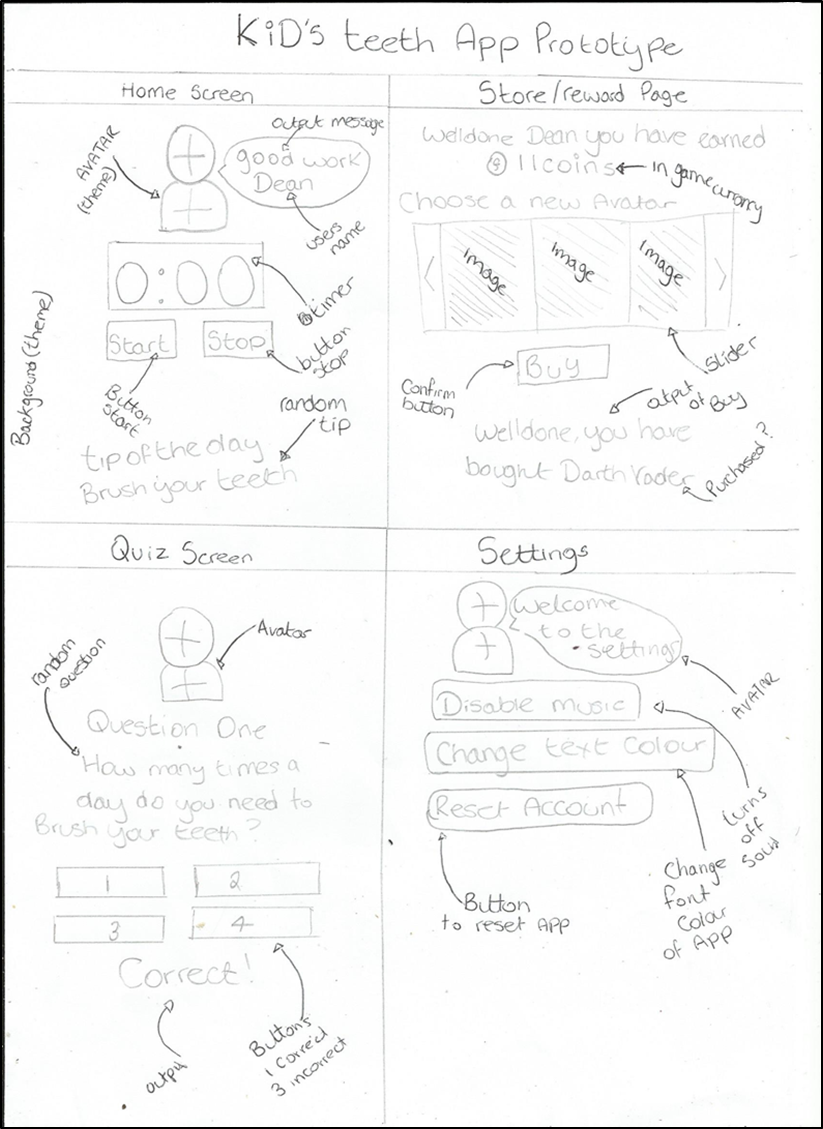 KiD's teeth App Prototype
Home Screen
output message
AVATAR
(theme)
good work
Dean
users
name
0:00
timer
Start
Stop
Button
start
button
stop
Background (theme)
random
tip
tip of the day
Brush your teeth
Store/reward Page
Welldone Dean you have earned
11coins
in game currony
Choose a new Avatar
<
Image
Image
Image
>
Slider
Buy
Confirm
button
output of Buy
Welldone, you have
bought Darth Vader
Purchased?
Quiz Screen
Avatar
random
question
Question One
How many times a
day do you need to
Brush your teeth?
1
2
3
4
Correct!
output
Buttons
1 correct
3 incorrect
Settings
Welcome
to the
settings
AVATAR
Disable music
Change text Colour
Reset Account
turns
off
sound
Button
to reset APP
Change
font
Colour
of App